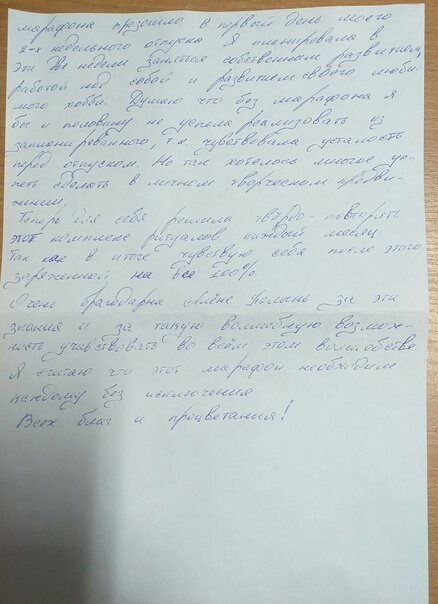 марафона прозошло в первый день моего
2-х недельного отпуска Я планировала в
эти же недели заняться собственным развитием,
работой над собой и развитием своего люби-
мого хобби. Думаю что без марафона я
бы и половину не успела реализовать из
запланированного, т.к чувствовала усталость
перед отпуском. Но так хотелось многое ус-
петь сделать в личном творческом продви-
жении.
Теперь для себя решила твёрдо - повторять
этот комплекс ритуалов каждый месяц.
Так как в итоге чувствую себя после этого
заряженной на все 200%
Очень благодарна Алёне Полынь за эти
знания и за такую волшебную возмож-
ность учавствовать во всём этом волшебстве.
Я считаю что этот марафон необходим
каждому без исключения
Всех благ и процветания!